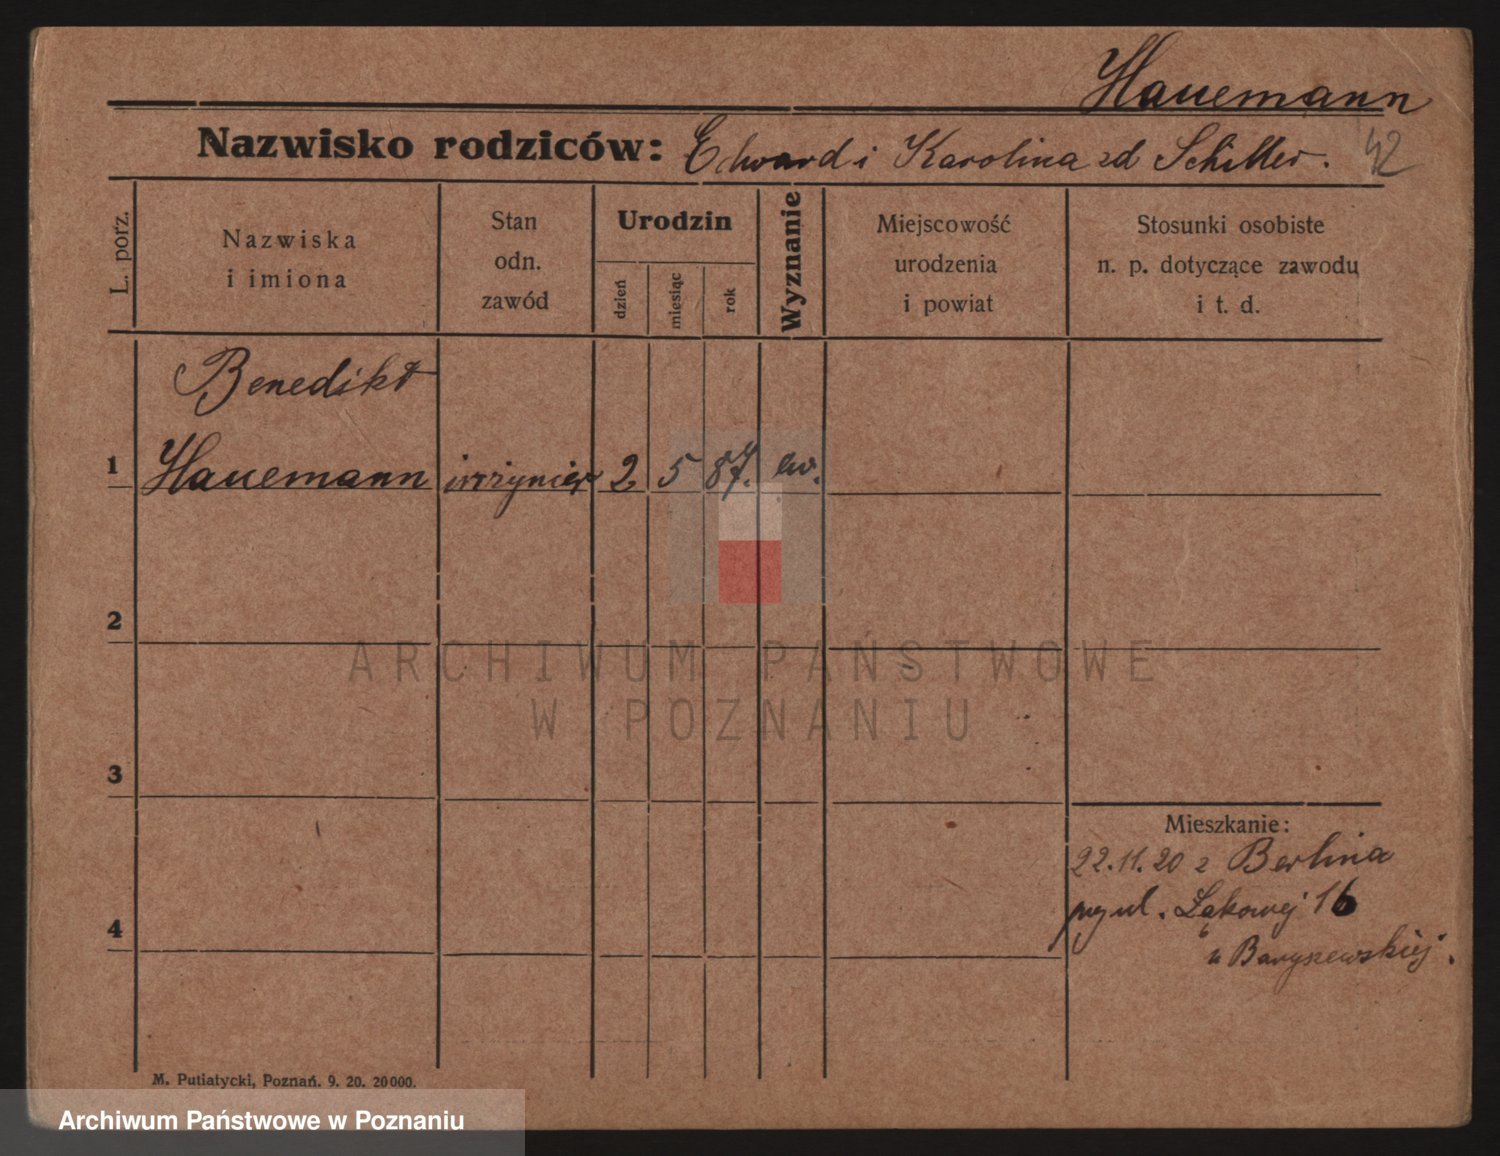 Hauemann
Nazwisko rodziców: Edward i Karolina zd Schiller. 42
L. porz.
Nazwiska i imiona
Stan odn. zawód
Urodzin
dzień
miesiąc
rok
Wyznanie
Miejscowość urodzenia i powiat
Stosunki osobiste n. p. dotyczące zawodu i t. d.
Benedikt
1 Hauemann inżynier 2 5 87. ew.
2
ARCHIWUM PAŃSTWOWE
W POZNANIU
3
Mieszkanie:
22.11.20 z Berlina
przy ul. Łąkowej 16
4
u Baryszewskiej.
M. Putiatycki, Poznań. 9. 20. 20000.
Archiwum Państwowe w Poznaniu